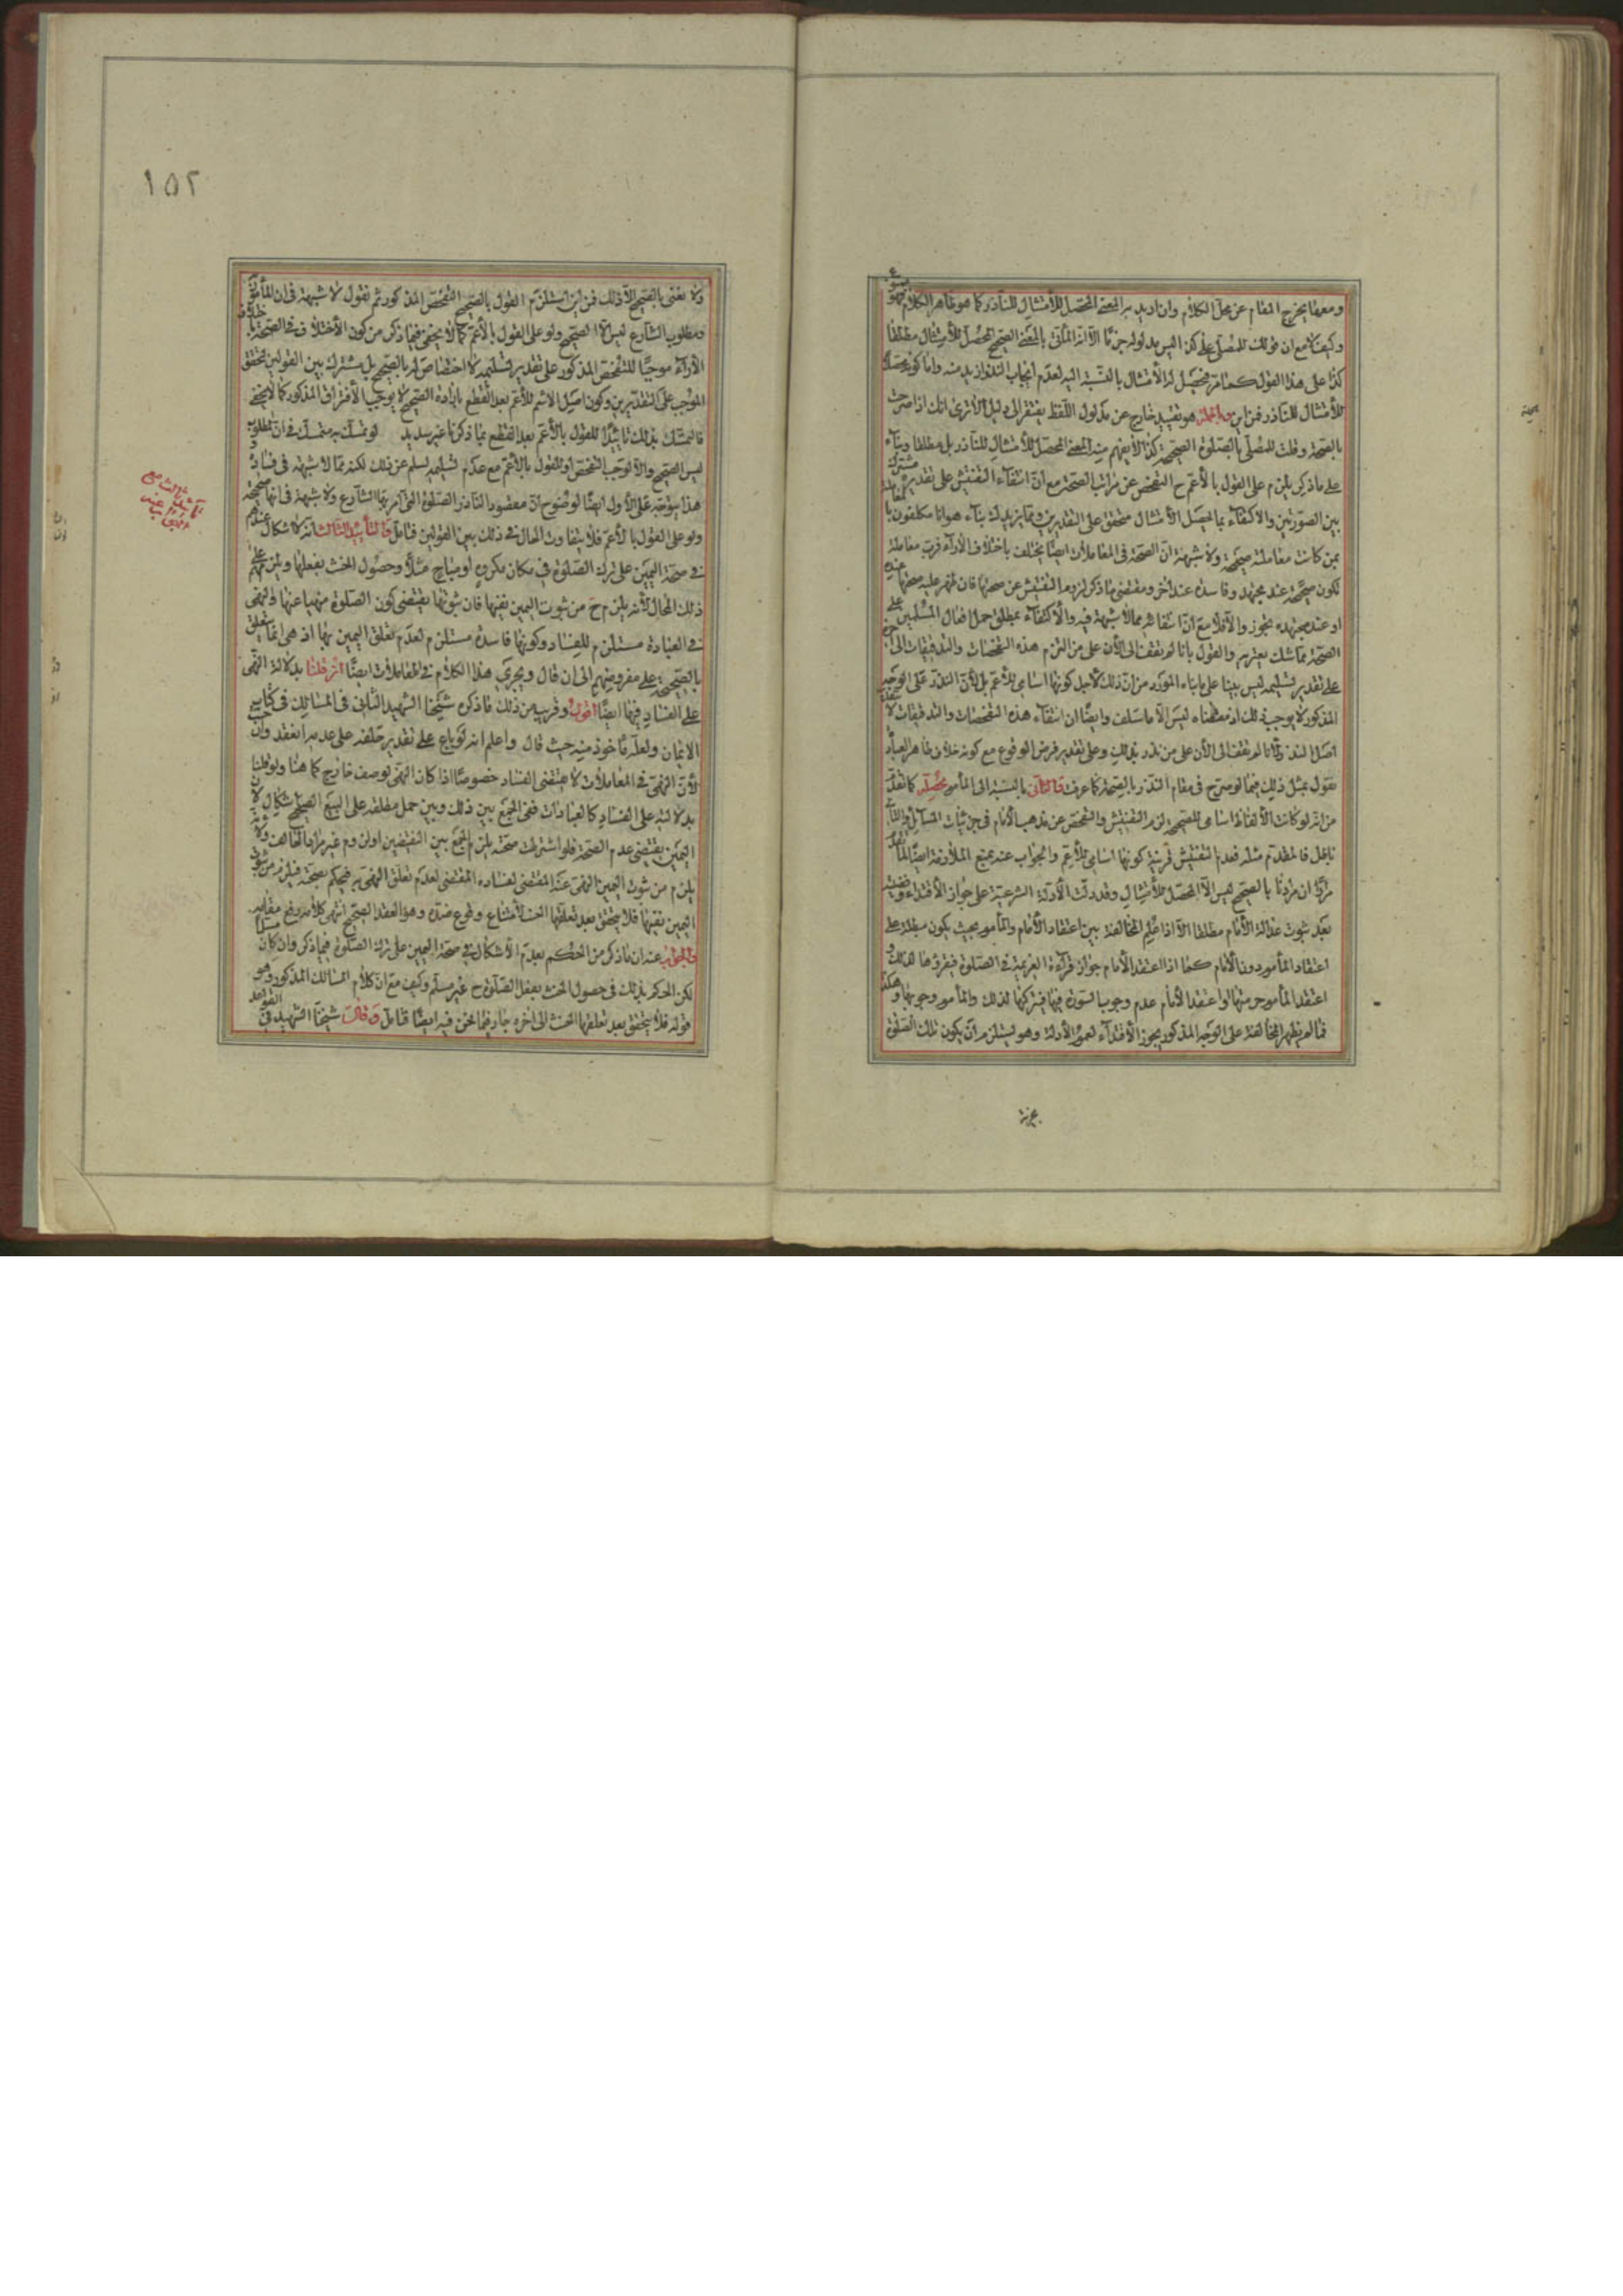 ومعها يخرج المقام عن محل الكلام وان اريد به المعنى المحصل للأمتثال للناذر كما هو ظاهر الكلام فهو
وكيف لا مع ان قولك للمصلى على كذا ليس مدلوله جزما الا انه المأتى بالمعنى الصحيح المحصل للأمتثال مطلقا
كذا على هذا القول كما مر فيحصل له الأمتثال بالنسبة اليه لعدم ايجاب النذر ازيد منه واما كونه محصلا
للأمتثال للناذر فمن اين وبالجملة هو تقييد خارج عن مدلول اللفظ يفتقر الى دليل الا ترى انك اذا صرحت
بالصحة وقلت للمصلى بالصلوة الصحيحة كذا لا يفهم منه المعنى المحصل للأمتثال للناذر بل مطلقا وبناء
على ما ذكر يلزم على القول بالأعم ح التفحص عن مراتب الصحة مع ان انتفاء التفتيش على تقديره مشترك
بين الصورتين والأكتفاء بما يحصل الأمتثال متحقق على التقديرين ومما يزيدك بناء هو انا مكلفون بالمعاملة
بمن كانت معاملته صحيحة ولا شبهة ان الصحة فى المعاملات ايضا يختلف باختلاف الأراء فرب معاملة
تكون صحيحة عند مجتهد وفاسدة عند اخر ومقتضى ما ذكر لزوم التفتيش عن صحتها فان ظهر عليه صحتها عنده
او عند مجتهده يجوز والا فلا مع ان انتفائه مما لا شبهة فيه والأكتفاء بمطلق حمل افعال المسلمين على
الصحة مما لا شك يعتريه والقول بانا لم نقف الى الأن على من التزم هذه التفحصات والتدقيقات الى اخره
على تقدير تسليمه ليس مبنيا على ما بناه المورد من ان ذلك لأجل كونها اسامى للأعم بل لأن النذر على الوجه
المذكور لا يوجب ذلك اذ مقتضاه ليس الا ما سلف وايضا ان انتفاء هذه التفحصات والتدقيقات لا
اصل النذر فانا لم نقف الى الأن على من نذر بذلك وعلى تقدير فرض الوقوع مع كونه خلاف ظاهر العبارة
نقول بمثل ذلك فيما لو صرح فى مقام النذر بالصحة كما عرفت والثانى بالنسبة الى المأموم محصله كما تقدم
من انه لو كانت الألفاظ اسامى للصحيحة لزم التفتيش والتفحص عن مذهب الأمام فى جزئيات المسائل والتالى
باطل فالمقدم مثله فعدم التفتيش قرينة كونها اسامى للأعم والجواب عنه بمنع الملازمة ايضا لما تقدم
مرارا ان مرادنا بالصحيح ليس الا المحصل للأمتثال وقد دلت الأدلة الشرعية على جواز الأقتداء
بعد ثبوت عدالة الأمام مطلقا الا اذا علم المخالفة بين اعتقاد الأمام والمأموم بحيث يكون مبطلة على
اعتقاد المأموم دون الأمام كما اذا اعتقد الأمام جواز قراءة العزيمة فى الصلوة فيقرؤها لذلك و
اعتقد المأموم حرمتها او اعتقد الأمام عدم وجوب السورة فيها فيتركها لذلك والمأموم وجوبها وهكذا
فما لم يظهر المخالفة على الوجه المذكور يجوز الأقتداء لعموم الأدلة وهو يستلزم ان يكون تلك الصلوة
١٥٢
ولا نعنى بالصحيح الا ذلك فمن اين استلزم القول بالصحيح التفحص المذكور ثم نقول لا شبهة فى ان المأمور به
ومطلوب الشارع ليس الا الصحيح ولو على القول بالأعم كما لا يخفى فيما ذكر من كون الأختلاف فى الصحة باختلاف
الأراء موجبا للتفحص المذكور على تقدير تسليمه لا اختصاص له بالصحيح بل مشترك بين القولين لتحقق
الموجب على التقديرين وكون اصل الأسم للأعم بعد القطع بارادة الصحيح لا يوجب الأفتراق المذكور كما لا يخفى
فالتمسك بذلك تاييدا للقول بالأعم بعد القطع بما ذكرنا غير سديد لو تمسك به متمسك فى ان مطلوبه
ليس الصحيح والا لوجب التفحص او للقول بالأعم مع عدم تسليمه لسلم عن ذلك لكنه مما لا شبهة فى فساده
هذا يتوجه على الأول ايضا لوضوح ان مقصود الناذر الصلوة التى امر بها الشارع ولا شبهة فى انها صحيحة
ولو على القول بالأعم فلا يتفاوت الحال فى ذلك بين القولين فتامل والتأييد الثالث انه لا اشكال عندهم
فى صحة اليمين على ترك الصلوة فى مكان مكروه او مباح مثلا وحصول الحنث بفعلها ويلزم على
ذلك المحال لأنه يلزم ح من ثبوت اليمين نفيها فان ثبوتها يقتضى كون الصلوة منهيا عنها والنهى
فى العبادة مستلزم للفساد وكونها فاسدة مستلزم لعدم تعلق اليمين بها اذ هى انما يتعلق
بالصحيحة على مفروضهم الى ان قال ويجرى هذا الكلام فى المعاملات ايضا ان قلنا بدلالة النهى
على الفساد فيها ايضا اقول وقريب من ذلك ما ذكره شيخنا الشهيد الثانى فى المسالك فى كتاب
الايمان ولعله مأخوذ منه حيث قال واعلم انه لو باع على تقدير حلفه على عدمه انعقد وان حنث
لأن النهى فى المعاملات لا يقتضى الفساد خصوصا اذا كان النهى لوصف خارج كما هنا ولو قلنا
بدلالته على الفساد كالعبادات ففى الجمع بين ذلك وبين حمل مطلقه على البيع الصحيح اشكال لأن
اليمين يقتضى عدم الصحة فلو اشترطت صحته يلزم الجمع بين النقيضين او لزوم غير مراد الحالف ولأنه
يلزم من ثبوت اليمين النهى عنه المقتضى لفساده المقتضى لعدم تعلق النهى به فيحكم بصحته فيلزم من ثبوت
اليمين نفيها فلا يتحقق بعد تعلقها الحنث لأمتناع وقوع ضده وهو العقد الصحيح انتهى كلامه رفع مقامه
والجواب عنه ان ما ذكر من الحكم بعدم الأشكال فى صحة اليمين على ترك الصلوة فيما ذكر وان كان مسلما
لكن الحكم بذلك فى حصول الحنث بفعل الصلوة ح غير مسلم وكيف مع ان كلام المسالك المذكور وهو
قوله فلا يتحقق بعد تعلقها الحنث الى اخره جار فيما نحن فيه ايضا فتامل وقال شيخنا الشهيد فى القواعد